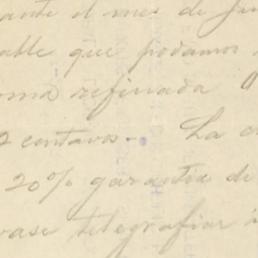 ante el mes de
able que podamos
oma refinada
2 centavos. La
20% garantia de
vase telegrafiar